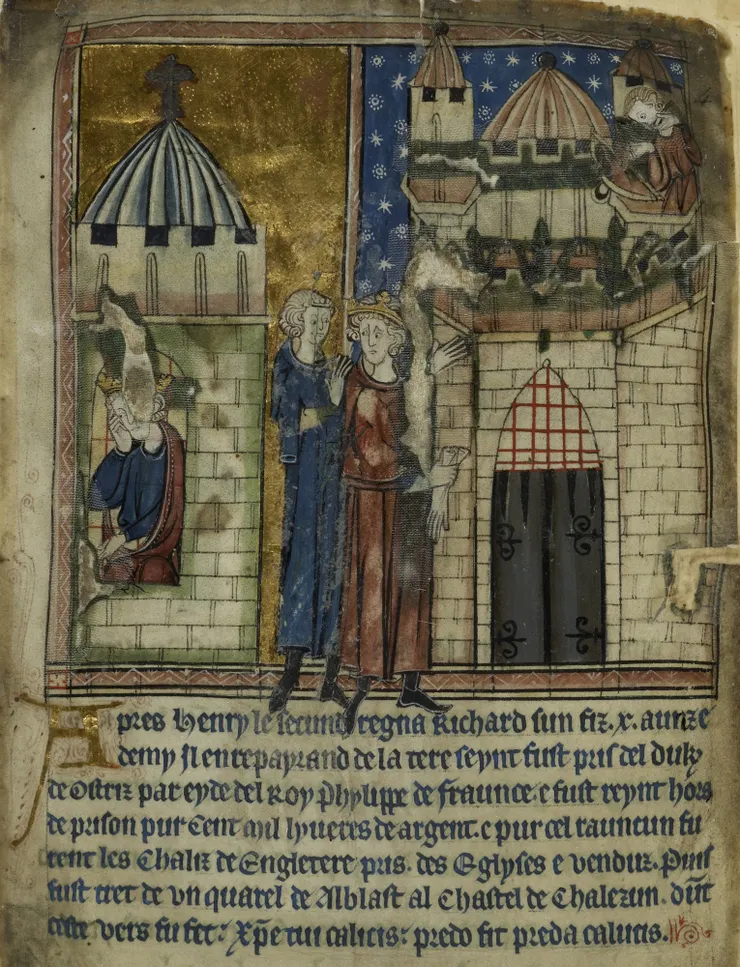 Apres Henry le secund regna Richard sun fiz .x. aunz e
demy Il en repayrand de la tere seynt fust pris del duk
de Ostriz par eyde del Roy Phylippe de fraunce. e fust reynt hors
de prison pur Cent mil lyueres de argent. e pur cel rauncun fu
rent les Chaliz de Engletere pris. des Eglyses e venduz. Puis
fust tret de vn quarel de Alblast al Chastel de Chalezun. dūt
ceste vers fu fet: xp̄e tui calicis: predo fit preda calucis.